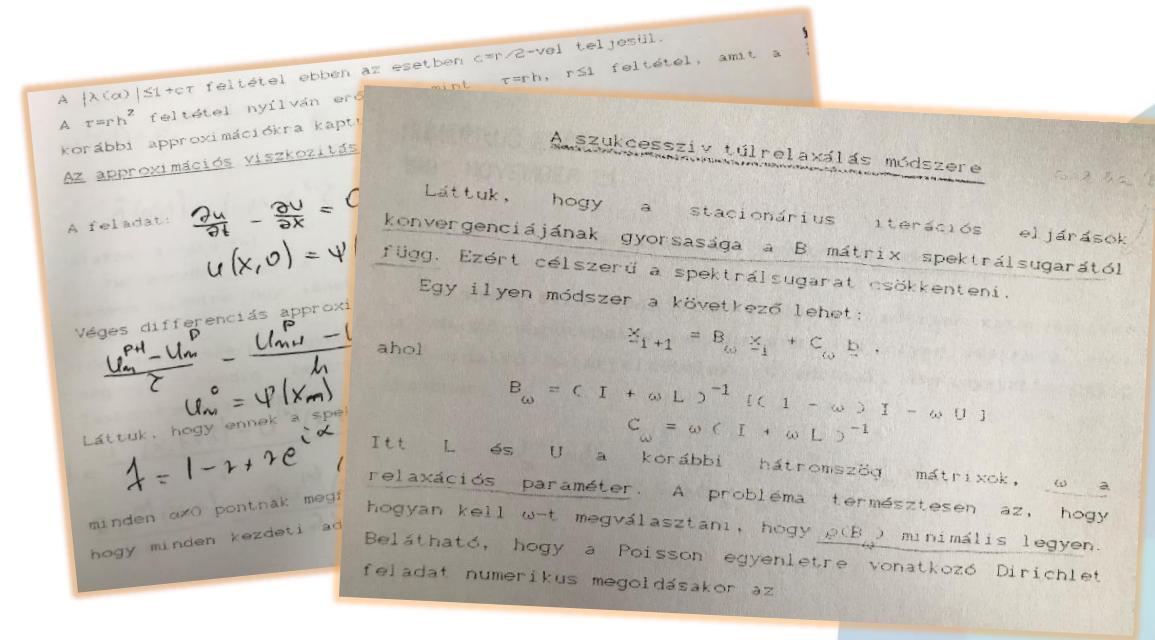 A |λ(α)|≤1+cτ feltétel ebben az esetben c=r/2-vel teljesül.
A τ=rh² feltétel nyilván mint τ=rh, r≤1 feltétel, amit a
korábbi approximációkra
Az approximációs viszkozitás
A feladat: ∂u/∂t - ∂u/∂x =
u(x,0) = ψ(
Véges differenciás
(u_m^{p+1} - u_m^p)/τ - (u_{m+1}^p -
u_m^0 = ψ(x_m)
Láttuk, hogy ennek a
λ = 1-r+re^{iα}
minden α≠0 pontnak
hogy minden kezdeti
A szukcessziv túlrelaxálás módszere
Láttuk, hogy a stacionárius iterációs eljárások
konvergenciájának gyorsasága a B mátrix spektrálsugarától
függ. Ezért célszerű a spektrálsugarat csökkenteni.
Egy ilyen módszer a következő lehet:
x_{i+1} = B_ω x_i + C_ω b ,
ahol
B_ω = ( I + ω L )^{-1} [( 1 - ω ) I - ω U ]
C_ω = ω ( I + ω L )^{-1}
Itt L és U a korábbi hátromszög mátrixok, ω a
relaxációs paraméter. A probléma természetesen az, hogy
hogyan kell ω-t megválasztani, hogy ρ(B_ω) minimális legyen.
Belátható, hogy a Poisson egyenletre vonatkozó Dirichlet
feladat numerikus megoldásakor az